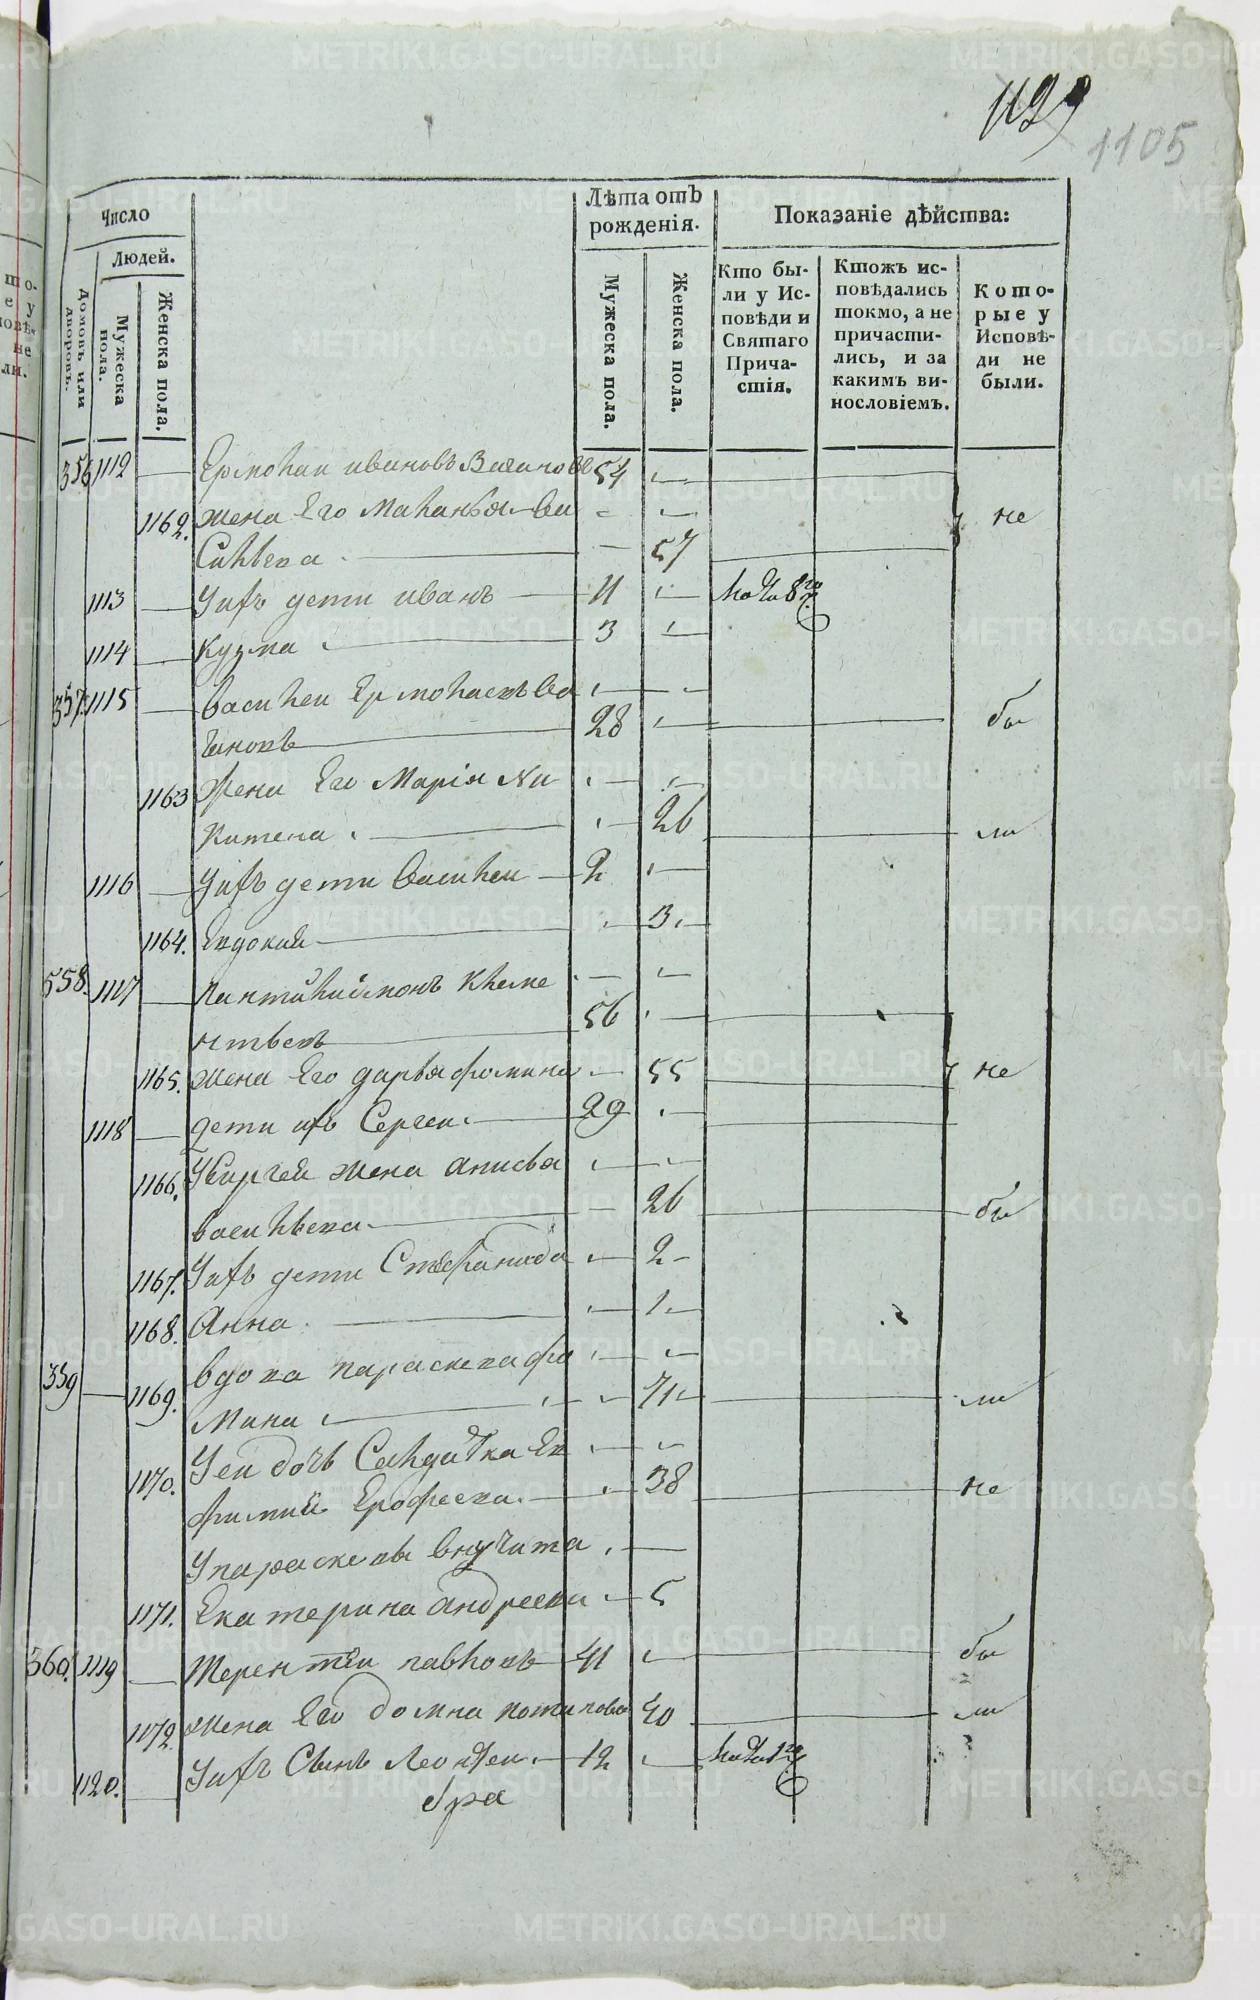 1105
Число
Лѣта отъ
рожденія.
Показаніе дѣйства:
Людей.
Домовъ или
дворовъ.
Мужеска
пола.
Женска пола.
Мужеска пола.
Женска пола.
Кто бы-
ли у Ис-
повѣди и
Святаго
Прича-
стія.
Ктожъ ис-
повѣдались
токмо, а не
причасти-
лись, и за
какимъ ви-
нословіемъ.
Кото-
рые у
Исповѣ-
ди не
были.
356 1112 Ермолаи ивановъ 54
1162. жена Его Маланья Ва не
сильева 57
1113 Уихъ дети иванъ 11
1114 Кузма 3
357. 1115 василеи Ермолаевъ Ва
гановъ 28 бы
1163 Жена Его Марія Ни
китена 26 ли
1116 Уихъ дети василеи 2
1164. Евдокия 3
558. 1117 Пантилиимонъ Клеме
нтьевъ 56
1165. жена Его дарья фомина 55 не
1118 дети ихъ Сергеи 29
1166. Усиргея жена анисья
васильева 26 бы
1167. Уихъ дети Степанида 2
1168. Анна 1
359 1169. вдова параскева фо
мина 71 ли
1170. Уеи дочь Салдатка Ев
фимия Ерофеева 38 не
Упараскевы внучата
1171. Екатерина андреева 5
360. 1119 Терентеи павловъ 41 бы
1172. жена Его домна потапова 40 ли
1120. Уихъ Сынъ Леонтеи 12
бра
METRIKI.GASO-URAL.RU